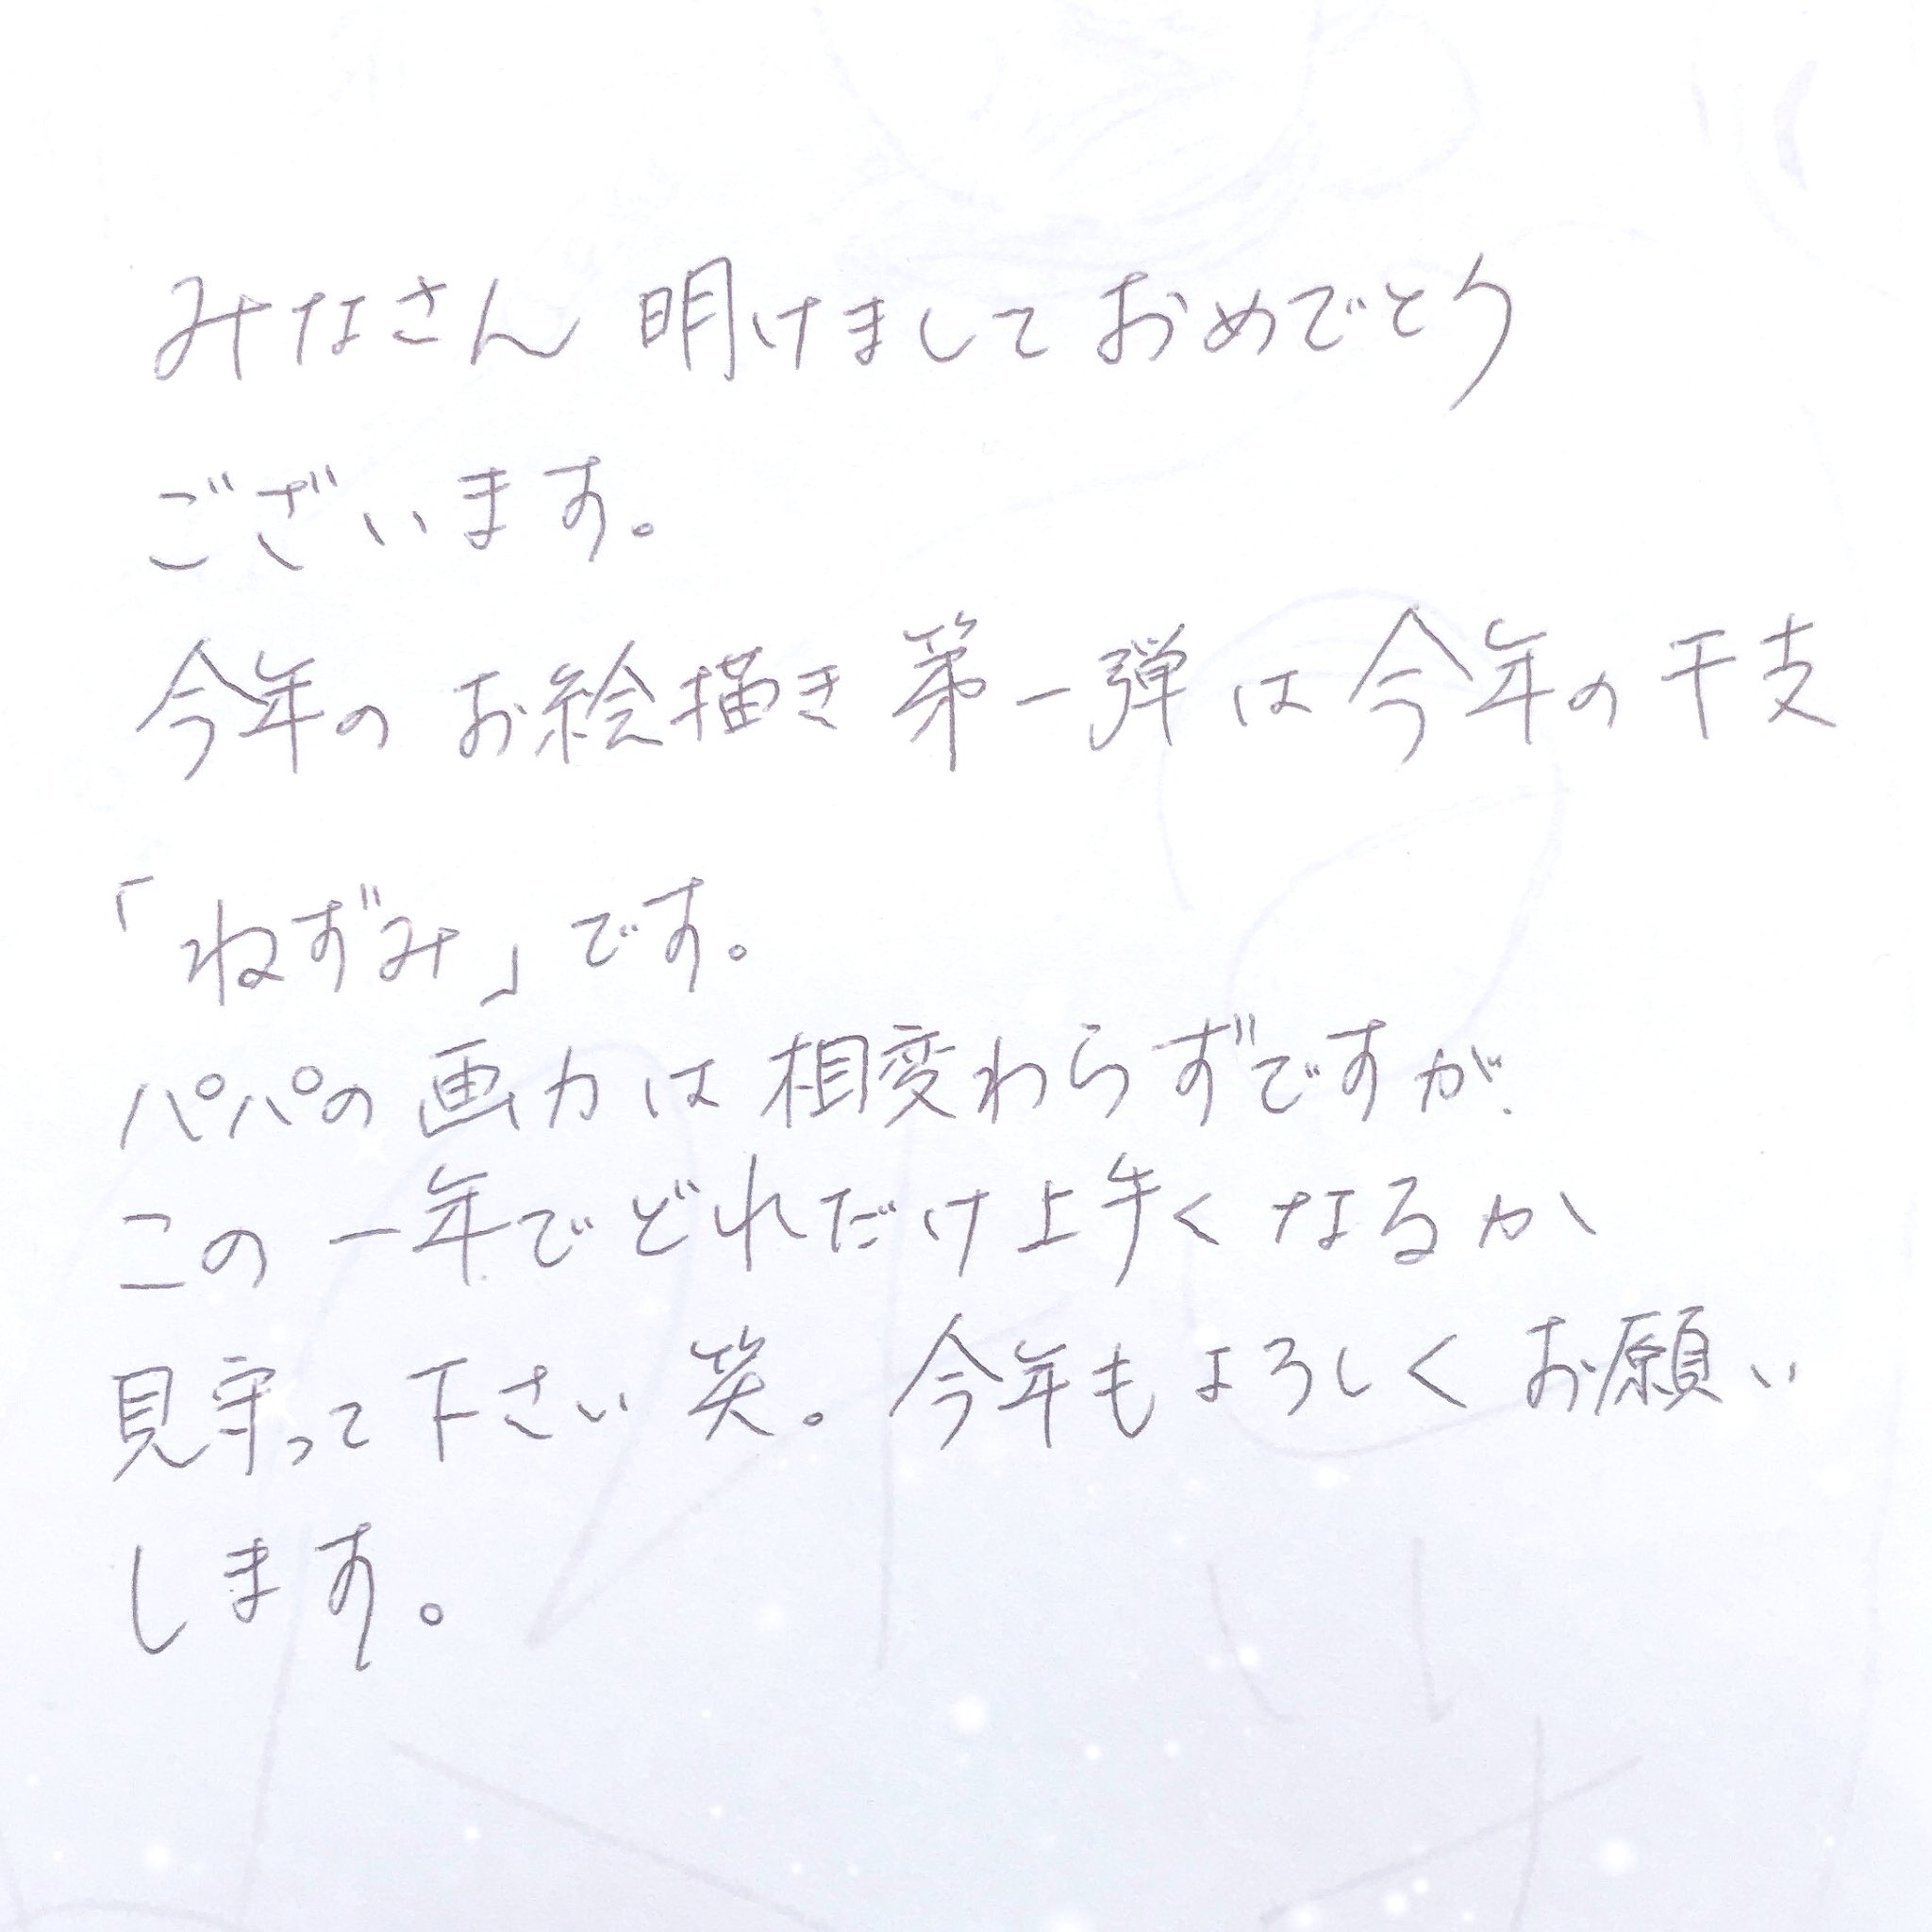 みなさん 明けましておめでとう
ございます。
今年の お絵描き 第一弾は今年の干支
「ねずみ」です。
パパの画力は相変わらずですが、
この一年でどれだけ上手くなるか
見守って下さい笑。今年もよろしくお願い
します。